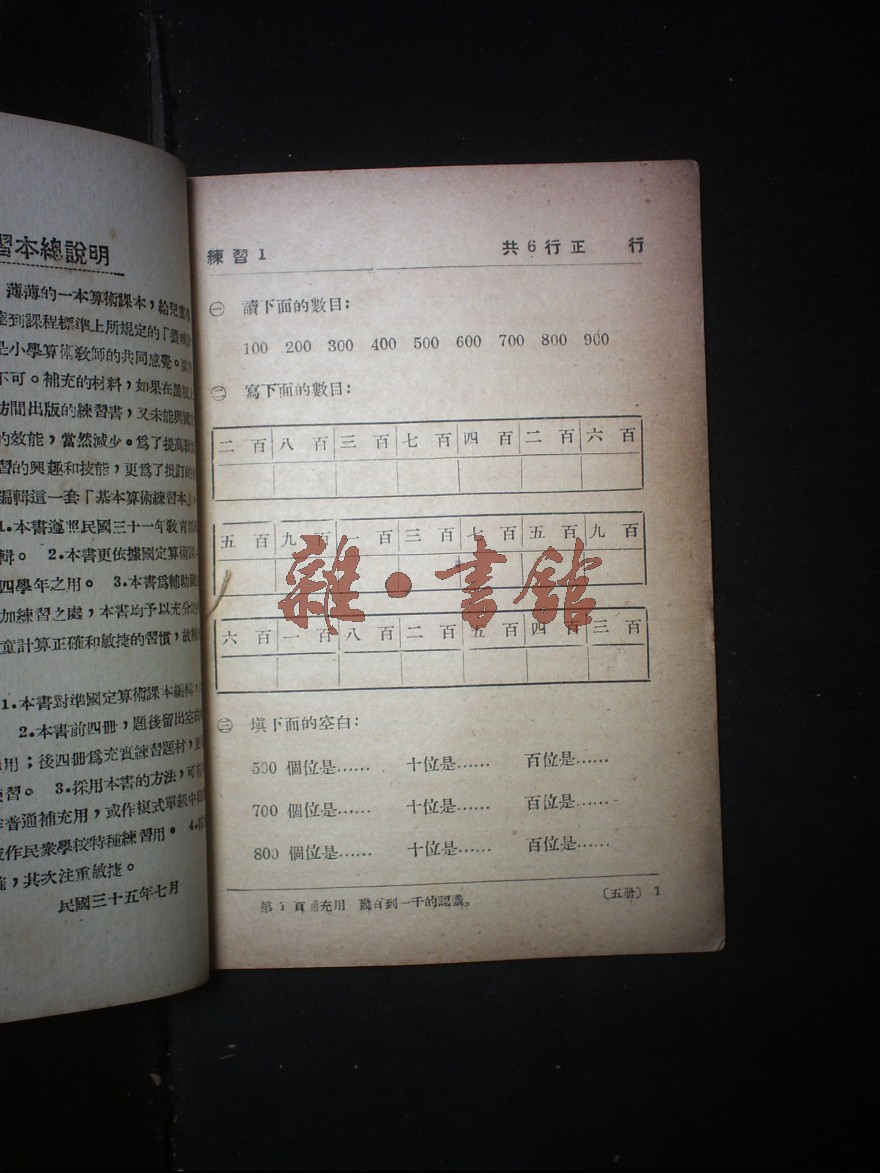 習本總說明
薄薄的一本算術課本，給兒童
達到課程標準上所規定的「養
是小學算術教師的共同感覺。
不可。補充的材料，如果在黑板上
坊間出版的練習書，又未能與國
的效能，當然減少。爲了提高
習的興趣和技能，更爲了批訂的
編輯這一套「基本算術練習本」。
1.本書遵照民國三十一年敎育部
輯。 2.本書更依據國定算術課
四學年之用。 3.本書爲輔助
加練習之處，本書均予以充分的
童計算正確和敏捷的習慣，故
1.本書對準國定算術課本編輯，
2.本書前四冊，題後留出空白
用；後四冊爲充實練習題材，
練習。 3.採用本書的方法，可
作普通補充用，或作複式單級中
或作民衆學校特種練習用。 4.
確，其次注重敏捷。
民國三十五年七月
練習1 共6行正 行
㊀ 讀下面的數目：
100 200 300 400 500 600 700 800 900
㊁ 寫下面的數目：
二百 八百 三百 七百 四百 二百 六百
五百 九百 一百 三百 七百 五百 九百
六百 一百 八百 二百 五百 四百 三百
㊂ 塡下面的空白：
500 個位是…… 十位是…… 百位是……
700 個位是…… 十位是…… 百位是……
800 個位是…… 十位是…… 百位是……
第1頁補充用 幾百到一千的認識。 〔五册〕1
雜·書館